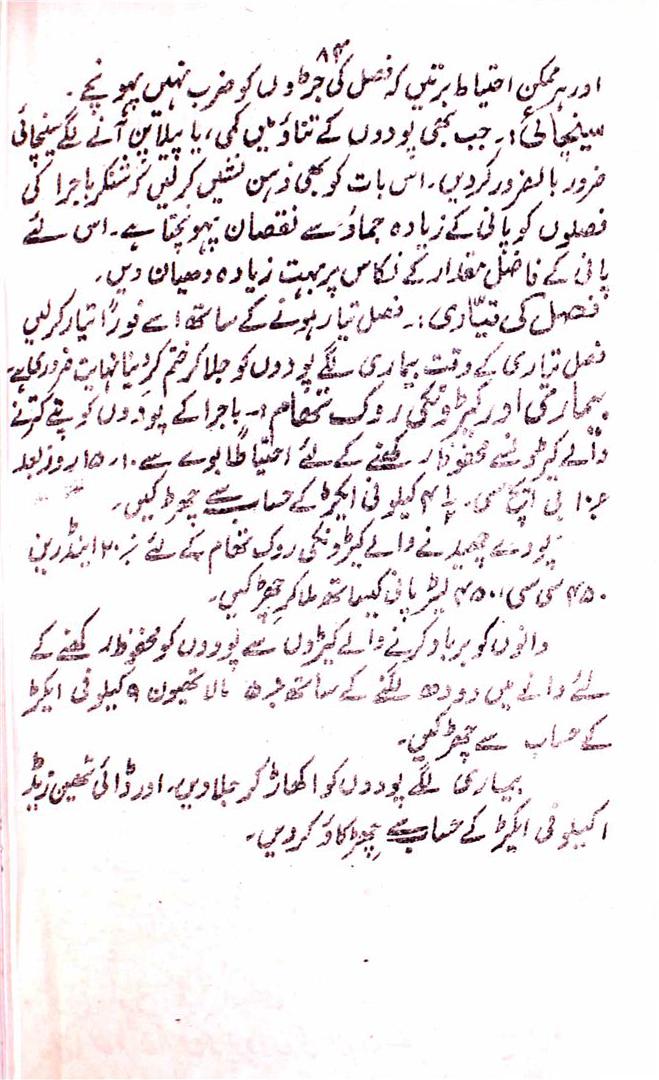 ۸۴
اور ہر ممکن احتیاط برتیں کہ فصل کی جڑوں کو ضرب نہیں پہونچے۔
سینچائی:۔ جب بھی پودوں کے تناؤ میں کمی، یا پیلاپن آنے لگے سینچائی
ضرور بالضرور کردیں۔ اس بات کو بھی ذہن نشیں کرلیں کہ شنکر باجرا کی
فصلوں کو پانی کے زیادہ جماؤ سے نقصان پہونچتا ہے۔ اس لئے
پانی کے فاضل مقدار کے نکاس پر بہت زیادہ دھیان دیں۔
فصل کی تیّاری:۔ فصل تیار ہونے کے ساتھ اسے فوراً تیار کرلیں
فصل تیاری کے وقت بیماری لگے پودوں کو جلاکر ختم کر دینا نہایت ضروری ہے۔
بیماری اور کیڑونکی روک تھام:۔ باجرا کے پودوں کو پتے کترنے
والے کیڑونسے محفوظ رکھنے کے لئے احتیاطاً بونے سے ۱۰۔۱۵ روز بعد
٪۱۰ بی ایچ سی۔ ۴ کیلو فی ایکڑ کے حساب سے چھڑکیں۔
پودے چھیدنے والے کیڑونکی روک تھام کے لئے ٪۲۰ اینڈرین
۴۵۰ سی سی، ۴۵۰ لیٹر پانی کیساتھ ملاکر چھڑکیں۔
دانوں کو برباد کرنے والے کیڑوں سے پودوں کو محفوظ رکھنے کے
لئے دانے میں دودھ لگنے کے ساتھ ٪۵ مالاتھیون ۹ کیلو فی ایکڑ
کے حساب سے چھڑکیں۔
بیماری لگے پودوں کو اکھاڑ کر جلادیں۔ اور ڈائی تھین زیڈ
۱ کیلو فی ایکڑ کے حساب سے چھڑکاؤ کردیں۔